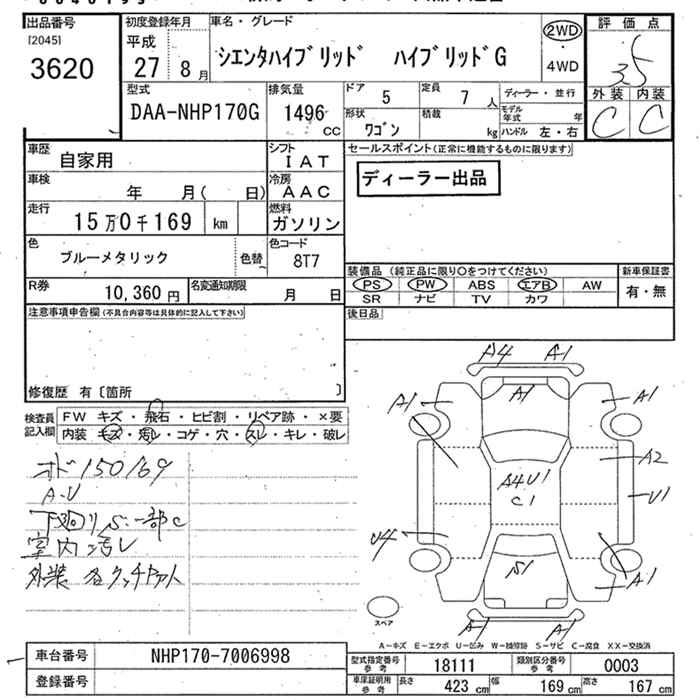 出品番号 初度登録年月 車名・グレード 評価点
[2045] 平成 シエンタハイブリッド ハイブリッドG 2WD 3.5
3620 27 8月 ・4WD 外装 内装
型式 排気量 ドア 5 定員 7人 ディーラー・並行 C C
DAA-NHP170G 1496 cc 形状 ワゴン 積載 kg モデル年式 年
ハンドル 左・右
車歴 自家用 シフト IAT セールスポイント(正常に機能するものに限ります)
車検 年 月( 日) 冷房 AAC ディーラー出品
走行 15万0千169 km 燃料 ガソリン
色 ブルーメタリック 色替 色コード 8T7
装備品 (純正品に限り○をつけてください) 新車保証書
R券 10,360円 名変通知期限 月 日 PS PW ABS エアB AW 有・無
SR ナビ TV カワ
注意事項申告欄(不具合内容等は具体的に記入して下さい) 後日品
修復歴 有〔箇所 〕
検査員記入欄 FW キズ・飛石・ヒビ割・リペア跡・×要
内装 キズ・汚レ・コゲ・穴・スレ・キレ・破レ
オド150169
A・U
下廻りS・一部C
室内汚レ
外装 各タッチペイント
A4 A1
A1 A1 A1
A4U1 A2
C1 U1
U4
S1 A1
A1 A1
スペア
A-キズ E-エクボ U-凹み W-補修跡 S-サビ C-腐食 XX-交換済
車台番号 NHP170-7006998 型式指定番号 参考 18111 類別区分番号 参考 0003
登録番号 車庫証明用 参考 長さ 423cm 幅 169cm 高さ 167cm